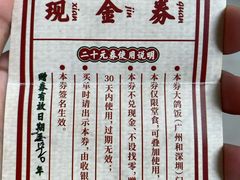 现金券
xian jin quan
二十元券使用说明
·本券大鸽饭(广州和深圳
·本券仅限堂食,可叠加使用,
·本券不兑现金、不设找零,
·30天内使用,过期无效;
·买单时请出示本券,由收银
·本券签名生效。
赠券有效日期至
年